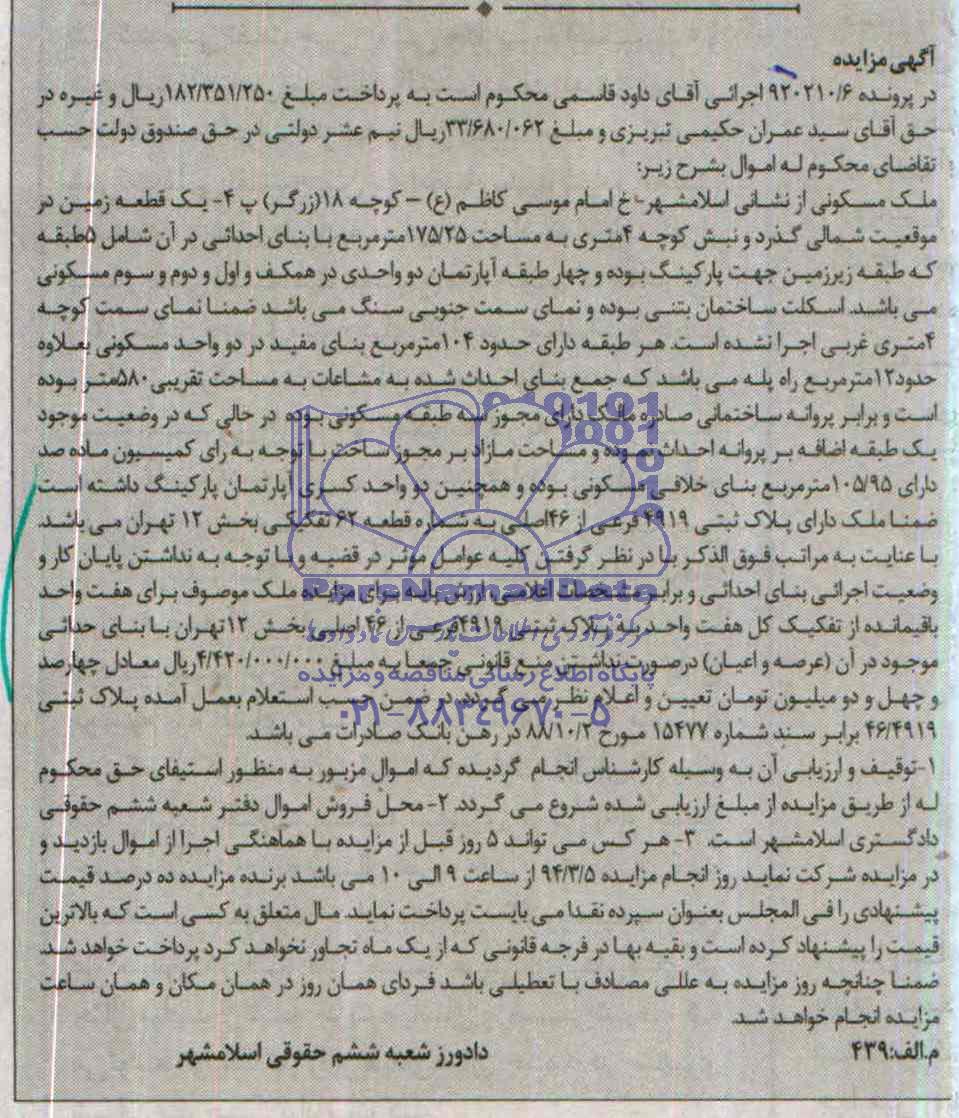 آگهی مزایده
در پرونده ۹۲۰۲۱۰/۶ اجرائی آقای داود قاسمی محکوم است به پرداخت مبلغ ۱۸۲/۳۵۱/۲۵۰ریال و غیره در
حق آقای سید عمران حکیمی تبریزی و مبلغ ۳۳/۶۸۰/۰۶۲ریال نیم عشر دولتی در حق صندوق دولت حسب
تقاضای محکوم له اموال بشرح زیر:
ملک مسکونی از نشانی اسلامشهر- خ امام موسی کاظم (ع) – کوچه ۱۸(زرگر) پ ۴- یک قطعه زمین در
موقعیت شمالی گذرد و نبش کوچه ۴متری به مساحت ۱۷۵/۲۵مترمربع با بنای احداثی در آن شامل ۵طبقه
که طبقه زیرزمین جهت پارکینگ بوده و چهار طبقه آپارتمان دو واحدی در همکف و اول و دوم و سوم مسکونی
می باشد. اسکلت ساختمان بتنی بوده و نمای سمت جنوبی سنگ می باشد ضمنا نمای سمت کوچه
۴متری غربی اجرا نشده است. هر طبقه دارای حدود ۱۰۴مترمربع بنای مفید در دو واحد مسکونی بعلاوه
حدود۱۲مترمربع راه پله می باشد که جمع بنای احداث شده به مشاعات به مساحت تقریبی۵۸۰متر بوده
است و برابر پروانه ساختمانی صادره مالک دارای مجوز سه طبقه مسکونی بوده در حالی که در وضعیت موجود
یک طبقه اضافه بر پروانه احداث نموده و مساحت مازاد بر مجوز ساخت با توجه به رای کمیسیون ماده صد
دارای ۱۰۵/۹۵مترمربع بنای خلافی مسکونی بوده و همچنین دو واحد کسری آپارتمان پارکینگ داشته است
ضمنا ملک دارای پلاک ثبتی ۴۹۱۹ فرعی از ۴۶اصلی به شماره قطعه ۶۲ تفکیکی بخش ۱۲ تهران می باشد.
با عنایت به مراتب فوق الذکر با در نظر گرفتن کلیه عوامل موثر در قضیه و با توجه به نداشتن پایان کار و
وضعیت اجرائی بنای احداثی و برابر مشخصات اعلامی ارزش پایه برای مزایده ملک موصوف برای هفت واحد
باقیمانده از تفکیک کل هفت واحد به پلاک ثبتی ۴۹۱۹فرعی از ۴۶ اصلی بخش ۱۲تهران با بنای حداثی
موجود در آن (عرصه و اعیان) درصورت نداشتن منع قانونی جمعا به مبلغ ۴/۴۲۰/۰۰۰/۰۰۰ریال معادل چهارصد
و چهل و دو میلیون تومان تعیین و اعلام نظر می گردد. در ضمن حسب استعلام بعمل آمده پلاک ثبتی
۴۶/۴۹۱۹ برابر سند شماره ۱۵۴۷۷ مورخ ۸۸/۱۰/۲ در رهن بانک صادرات می باشد.
۱-توقیف و ارزیابی آن به وسیله کارشناس انجام گردیده که اموال مزبور به منظور استیفای حق محکوم
له از طریق مزایده از مبلغ ارزیابی شده شروع می گردد. ۲- محل فروش اموال دفتر شعبه ششم حقوقی
دادگستری اسلامشهر است. ۳- هر کس می تواند ۵ روز قبل از مزایده با هماهنگی اجرا از اموال بازدید و
در مزایده شرکت نماید روز انجام مزایده ۹۴/۳/۵ از ساعت ۹ الی ۱۰ می باشد برنده مزایده ده درصد قیمت
پیشنهادی را فی المجلس بعنوان سپرده نقدا می بایست پرداخت نماید. مال متعلق به کسی است که بالاترین
قیمت را پیشنهاد کرده است و بقیه بها در فرجه قانونی که از یک ماه تجاور نخواهد کرد پرداخت خواهد شد.
ضمنا چنانچه روز مزایده به عللی مصادف با تعطیلی باشد فردای همان روز در همان مکان و همان ساعت
مزایده انجام خواهد شد.
م.الف:۴۳۹ دادورز شعبه ششم حقوقی اسلامشهر
ParsNamadData
پایگاه اطلاع رسانی مناقصه و مزایده
۰۲۱-۸۸۳۴۹۶۷۰-۵